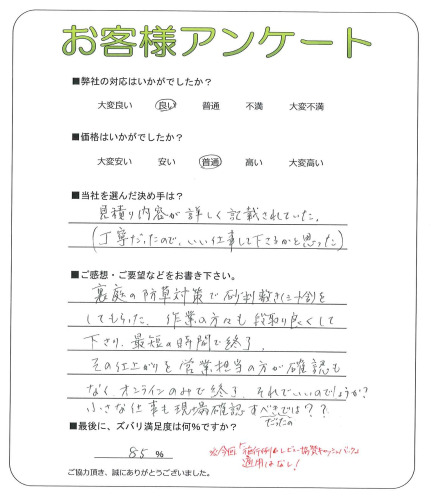 お客様アンケート
■弊社の対応はいかがでしたか？
大変良い 良い 普通 不満 大変不満
■価格はいかがでしたか？
大変安い 安い 普通 高い 大変高い
■当社を選んだ決め手は？
見積り内容が詳しく記載されていた。
(丁寧だったので、いい仕事して下さるかと思った)
■ご感想・ご要望などをお書き下さい。
裏庭の防草対策で砂利敷き
してもらった。作業の方々も段取り良くして
下さり、最短の時間で終了。
その仕上がりを営業担当の方が確認も
なくオンラインのみで終了。それでいいのでしょうか？
小さな仕事も現場確認すべきでは？？
だったの
■最後に、ズバリ満足度は何％ですか？
85 %
※今回「施行例&レビュー協賛キャッシュバック」
適用はなし！
ご協力頂き、誠にありがとうございました。